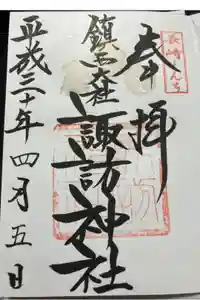 奉拝
長崎
鎮西大社
諏訪神社
平成三十年四月五日